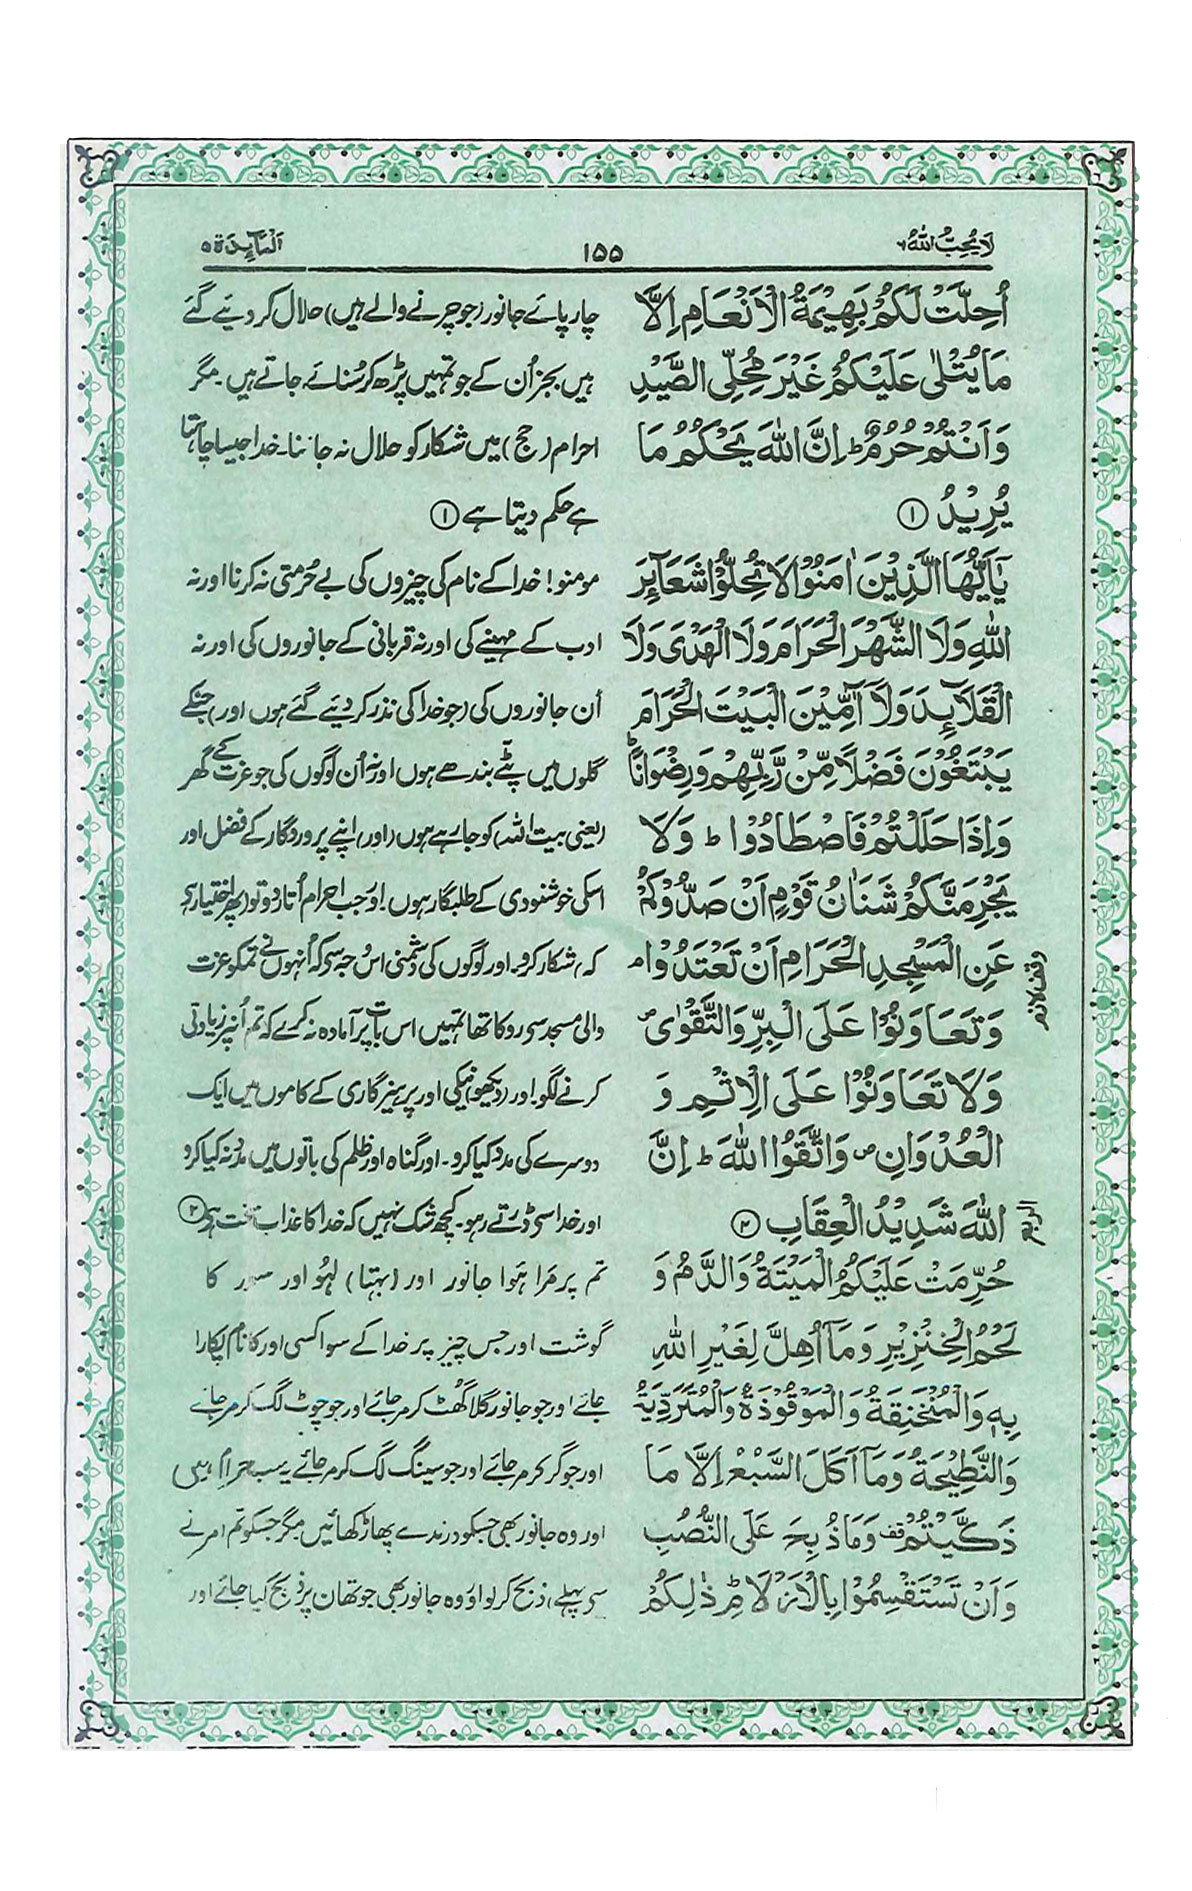 لَا یُحِبُّ اللّٰهُ ۶
۱۵۵
اَلْمَآئِدَة ۵
اُحِلَّتْ لَكُمْ بَهِیْمَةُ الْاَنْعَامِ اِلَّا
مَا یُتْلٰی عَلَیْكُمْ غَیْرَ مُحِلِّی الصَّیْدِ
وَ اَنْتُمْ حُرُمٌ ؕ اِنَّ اللّٰهَ یَحْكُمُ مَا
یُرِیْدُ ①
یٰۤاَیُّهَا الَّذِیْنَ اٰمَنُوْا لَا تُحِلُّوْا شَعَآىِٕرَ
اللّٰهِ وَ لَا الشَّهْرَ الْحَرَامَ وَ لَا الْهَدْیَ وَ لَا
الْقَلَآىِٕدَ وَ لَاۤ آٰمِّیْنَ الْبَیْتَ الْحَرَامَ
یَبْتَغُوْنَ فَضْلًا مِّنْ رَّبِّهِمْ وَ رِضْوَانًا ؕ
وَ اِذَا حَلَلْتُمْ فَاصْطَادُوْا ؕ وَ لَا
یَجْرِمَنَّكُمْ شَنَاٰنُ قَوْمٍ اَنْ صَدُّوْكُمْ
عَنِ الْمَسْجِدِ الْحَرَامِ اَنْ تَعْتَدُوْا ۘ
وَ تَعَاوَنُوْا عَلَی الْبِرِّ وَ التَّقْوٰی ۪
وَ لَا تَعَاوَنُوْا عَلَی الْاِثْمِ وَ
الْعُدْوَانِ ۪ وَ اتَّقُوا اللّٰهَ ؕ اِنَّ
اللّٰهَ شَدِیْدُ الْعِقَابِ ②
حُرِّمَتْ عَلَیْكُمُ الْمَیْتَةُ وَ الدَّمُ وَ
لَحْمُ الْخِنْزِیْرِ وَ مَاۤ اُهِلَّ لِغَیْرِ اللّٰهِ
بِهٖ وَ الْمُنْخَنِقَةُ وَ الْمَوْقُوْذَةُ وَ الْمُتَرَدِّیَةُ
وَ النَّطِیْحَةُ وَ مَاۤ اَكَلَ السَّبُعُ اِلَّا مَا
ذَكَّیْتُمْ قف وَ مَا ذُبِحَ عَلَی النُّصُبِ
وَ اَنْ تَسْتَقْسِمُوْا بِالْاَزْلَامِ ؕ ذٰلِكُمْ
وقف لازم
چار پائے جانور (جو چرنے والے ہیں) حلال کر دیئے گئے
ہیں بجز اُن کے جو تمہیں پڑھ کر سُنائے جاتے ہیں۔ مگر
احرام (حج) میں شکار کو حلال نہ جاننا۔ خدا جیسا چاہتا
ہے حکم دیتا ہے ①
مومنو! خدا کے نام کی چیزوں کی بے حُرمتی نہ کرنا اور نہ
ادب کے مہینے کی اور نہ قربانی کے جانوروں کی اور نہ
اُن جانوروں کی (جو خدا کی نذر کر دیئے گئے ہوں اور) جنکے
گلوں میں پٹّے بندھے ہوں اور نہ اُن لوگوں کی جو عزت کے گھر
(یعنی بیت اللہ) کو جا رہے ہوں (اور) اپنے پروردگار کے فضل اور
اسکی خوشنودی کے طلبگار ہوں۔ اور جب احرام اُتار دو تو (پھر اختیار ہے
کہ) شکار کرو۔ اور لوگوں کی دشمنی اس وجہ سے کہ اُنہوں نے تمکو عزت
والی مسجد سے روکا تھا تمہیں اس بات پر آمادہ نہ کرے کہ تم اُنپر زیادتی
کرنے لگو اور (دیکھو) نیکی اور پرہیزگاری کے کاموں میں ایک
دوسرے کی مدد کیا کرو۔ اور گناہ اور ظلم کی باتوں میں مدد نہ کیا کرو
اور خدا سے ڈرتے رہو۔ کچھ شک نہیں کہ خدا کا عذاب سخت ہے ②
تم پر مرا ہوا جانور اور (بہتا) لہُو اور سور کا
گوشت اور جس چیز پر خدا کے سوا کسی اور کا نام پکارا
جائے اور جو جانور گلا گھُٹ کر مر جائے اور جو چوٹ لگ کر مر جائے
اور جو گر کر مر جائے اور جو سینگ لگ کر مر جائے یہ سب حرام ہیں
اور وہ جانور بھی جسکو درندے پھاڑ کھائیں۔ مگر جسکو تم (مرنے
سے پہلے) ذبح کر لو اور وہ جانور بھی جو تھان پر ذبح کیا جائے اور